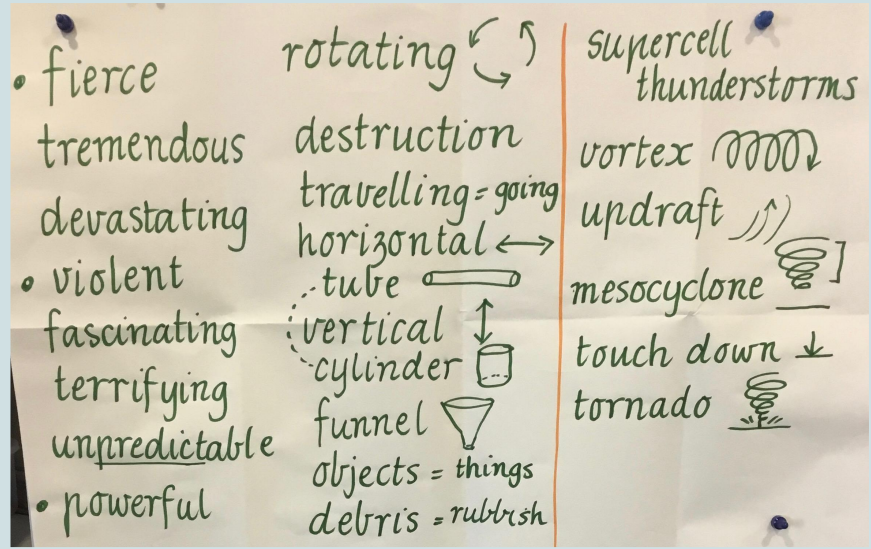 • fierce
tremendous
devastating
• violent
fascinating
terrifying
unpredictable
• powerful
rotating
destruction
travelling = going
horizontal
tube
vertical
cylinder
funnel
objects = things
debris = rubbish
supercell
thunderstorms
vortex
updraft
mesocyclone
touch down
tornado